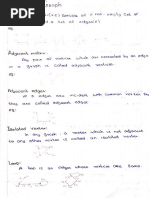 Graph
Adjacent vertices:
Any pair of vertices which are connected by an edge
in a graph is called adjacent vertices.
eg:
Adjacent edges:
If 2 edges are incident with common vertex then
they are called adjacent edges.
eg:
Isolated vertex:
In any graph a vertex which is not adjacent
to any other vertex is called an isolated vertex.
Loop:
A loop is an edge whose vertices are same.